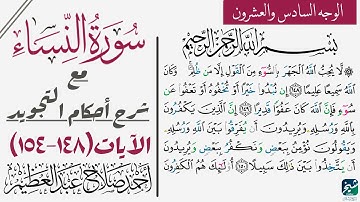 الوجه السادس والعشرون
سورة النساء
مع
شرح أحكام التجويد
الآيات (١٤٨-١٥٤)
أحمد صلاح عبد العظيم
بسم الله الرحمن الرحيم
لَّا يُحِبُّ اللَّهُ الْجَهْرَ بِالسُّوءِ مِنَ الْقَوْلِ إِلَّا مَن ظُلِمَ ۚ وَكَانَ
اللَّهُ سَمِيعًا عَلِيمًا ١٤٨ إِن تُبْدُوا خَيْرًا أَوْ تُخْفُوهُ أَوْ تَعْفُوا عَن
سُوءٍ فَإِنَّ اللَّهَ كَانَ عَفُوًّا قَدِيرًا ١٤٩ إِنَّ الَّذِينَ يَكْفُرُونَ
بِاللَّهِ وَرُسُلِهِ وَيُرِيدُونَ أَن يُفَرِّقُوا بَيْنَ اللَّهِ وَرُسُلِهِ
وَيَقُولُونَ نُؤْمِنُ بِبَعْضٍ وَنَكْفُرُ بِبَعْضٍ وَيُرِيدُونَ
أَن يَتَّخِذُوا بَيْنَ ذَٰلِكَ سَبِيلًا ١٥٠ أُولَٰئِكَ هُمُ الْكَافِرُونَ